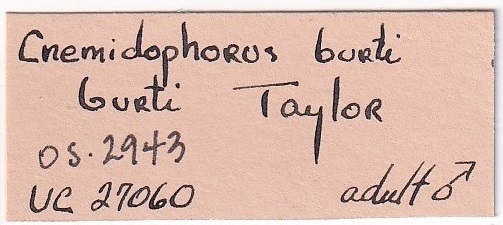 Cnemidophorus burti
burti Taylor
OS.2943
UC 27060 adult ♂